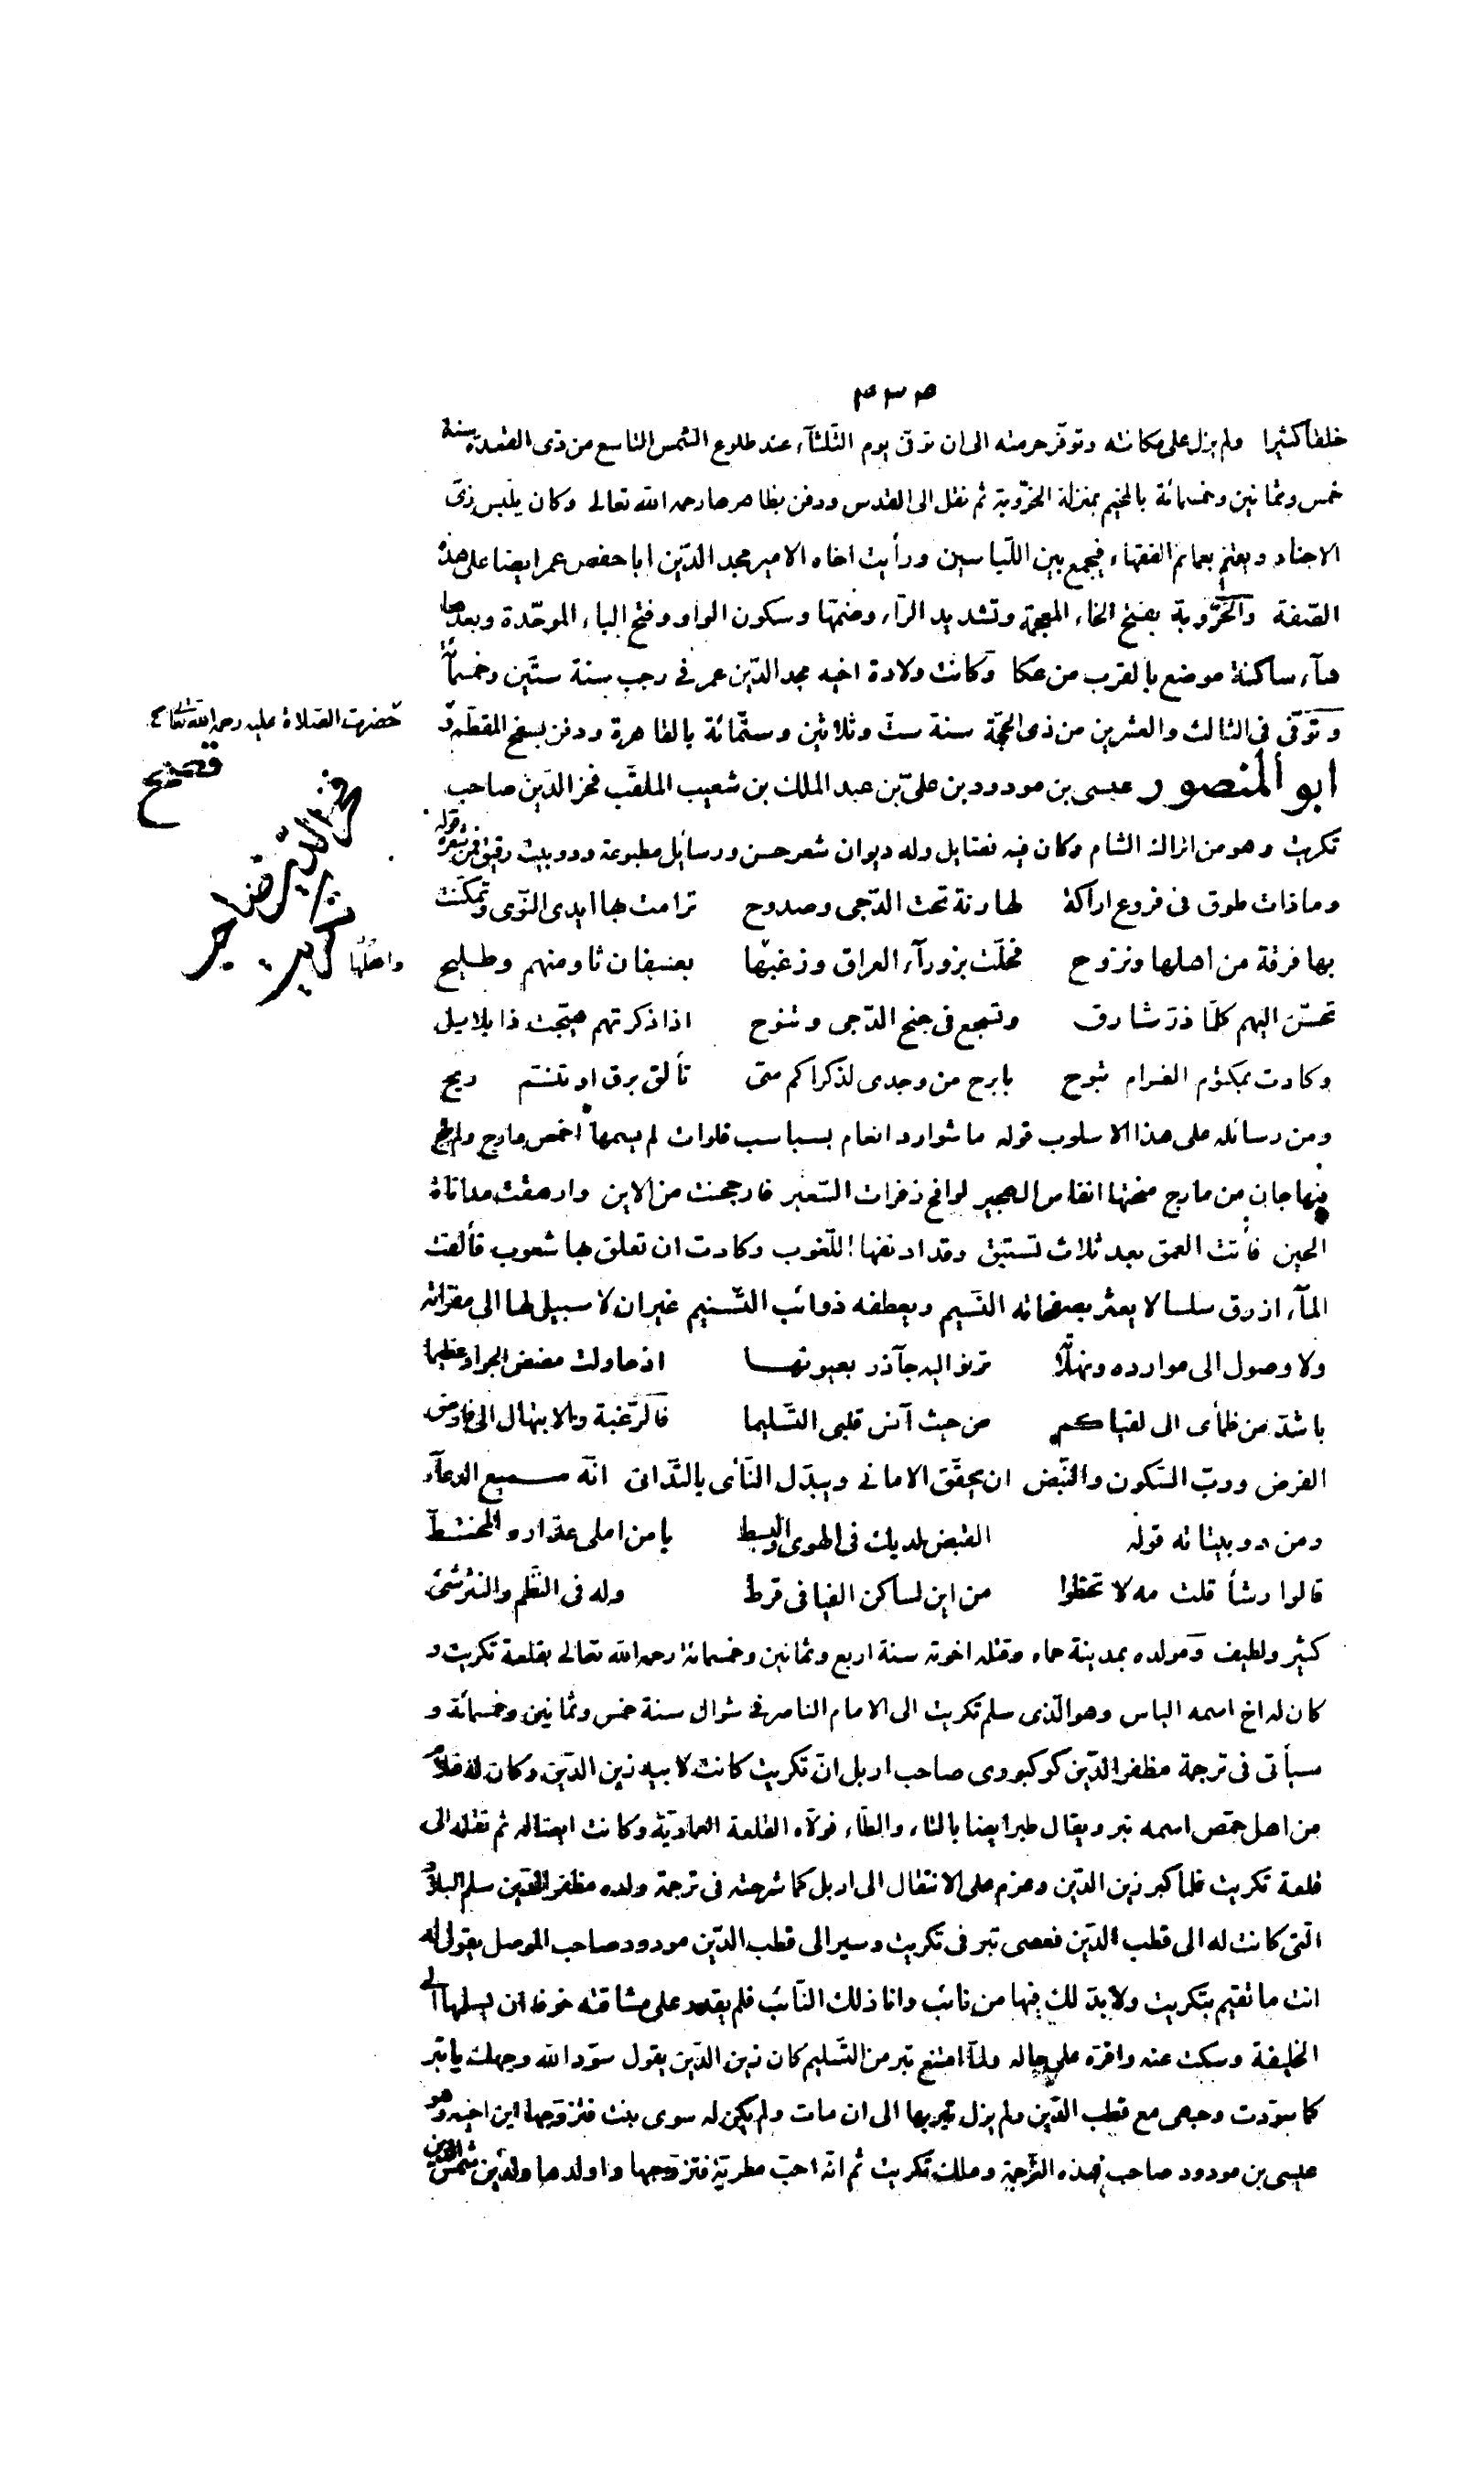 ٤٣٥
خلقا كثيرا ولم يزل على مكانته وتوفّر حرمته الى ان توفّى يوم الثّلثآء عند طلوع الشمس التاسع من ذى القعدة سنة
خمس وثمانين وخمسمائة بالمخيم بمنزلة الخرّوبة ثم نقل الى القدس ودفن بظاهرها رحمه الله تعالى وكان يلبس زىّ
الاجناد ويعتم بعمائم الفقهاء فيجمع بين اللباسين ورأيت اخاه الامير مجد الدّين ابا حفص عمر ايضا على هذه
الصّفة والخرّوبة بفتح الخاء المعجمة وتشديد الرّاء وضمّها وسكون الواو وفتح الباء الموحّدة وبعدها
هآء ساكنة موضع بالقرب من عكا وكانت ولادة اخيه مجد الدّين عمر فى رجب سنة ستّين وخمسمائة
وتوفّى فى الثالث والعشرين من ذى الحجّة سنة ستّ وثلاثين وستّمائة بالقاهرة ودفن بسفح المقطّم و
حضرت الصّلاة عليه رحمه الله تعالى
ابو المنصور عيسى بن مودود بن علىّ بن عبد الملك بن شعيب الملقّب فخر الدّين صاحب
فخر الدّين صاحب تكريت
تكريت وهو من اتراك الشام وكان فيه فضايل وله ديوان شعر حسن ورسايل مطبوعة ودوبيت رقيق فمن شعره قوله
وما ذات طوق فى فروع اراكة لها رنة تحت الدّجى وصدوح ترامت بها ايدى النّوى وتمكّنت
بها فرقة من اهلها ونزوح فحلّت بزورآء العراق وزغبها بعسفان ثاو منهم وطليح
تحنّ اليهم كلّما ذرّ شارق وتسجع فى جنح الدّجى وتنوح اذا ذكرتهم هيّجت ذا بلابيل
وكادت بمكتوم الغرام تبوح بابرح من وجدى لذكراكم متى تألق برق او تنسّم ريح
ومن رسائله على هذا الاسلوب قوله ما شوارد انعام بسباسب فلوات لم يسمها اخمص مارج ولم
فيها جان من مارج منحتها انفاس الهجير لوافح زفرات السّعير فارجحنت من الاين وارهقت مداناة
الحين فأتت العمق بعد ثلاث تستبق وقد ادنفها اللّغوب وكادت ان تعلق بها شعوب فألفت
المآء ازرق سلسالا يعثر بصفحاته النّسيم ويعطفه ذوائب التّسنيم غير ان لا سبيل لها الى مقرّاته
ولا وصول الى موارده ونهلاته ترنو اليه جآذر بعيونها اذ حاولت مضض الجواد عظيما
باشدّ من ظمأى الى لقياكم من حيث آنس قلبى التّسليما فالرّغبة والابتهال الى فارض
الفرض وربّ السّكون والنّبض ان يحقّق الامانى ويبدّل النّأى بالتّدانى انّه سميع الدعآء
ومن دوبيتاته قوله القبض لديك فى الهوى والبسط يا من املى عذاره والمختطّ
قالوا رشأ قلت مه لا تخطوا من اين لساكن الفيافى قرط وله فى النّظم والنثر شئ
كثير ولطيف ومولده بمدينة حماه وقتله اخوته سنة اربع وثمانين وخمسمائة رحمه الله تعالى بقلعة تكريت و
كان له اخ اسمه الياس وهو الّذى سلم تكريت الى الامام الناصر فى شوال سنة خمس وثمانين وخمسمائة و
سيأتى فى ترجمة مظفر الدّين كوكبورى صاحب اربل انّ تكريت كانت لابيه زين الدّين وكان له غلام
من اهل حمص اسمه تبر ويقال طبر ايضا بالتاء والطّاء فولّاه القلعة العماديّة وكانت ايضا له ثم نقله الى
قلعة تكريت فلما كبر زين الدّين وعزم على الانتقال الى اربل كما شرحته فى ترجمة ولده مظفر الدّين سلم البلاد
الّتى كانت له الى قطب الدّين فعصى تبر فى تكريت وسير الى قطب الدّين مودود صاحب الموصل يقول له
انت ما تقيم بتكريت ولا بدّ لك فيها من نائب وانا ذلك النّائب فلم يقدر على مشاقته خوفا ان يسلمها الى
الخليفة وسكت عنه واقرّه على حاله ولمّا امتنع تبر من التّسليم كان زين الدّين يقول سوّد الله وجهك يا تبر
كما سوّدت وجهى مع قطب الدّين ولم يزل تبر بها الى ان مات ولم يكن له سوى بنت فتزوّجها ابن اخيه وهو
عيسى بن مودود صاحب هذه التّرجمة وملك تكريت ثم انّه احبّ مطربة فتزوّجها واولدها ولدين شمس الدّين